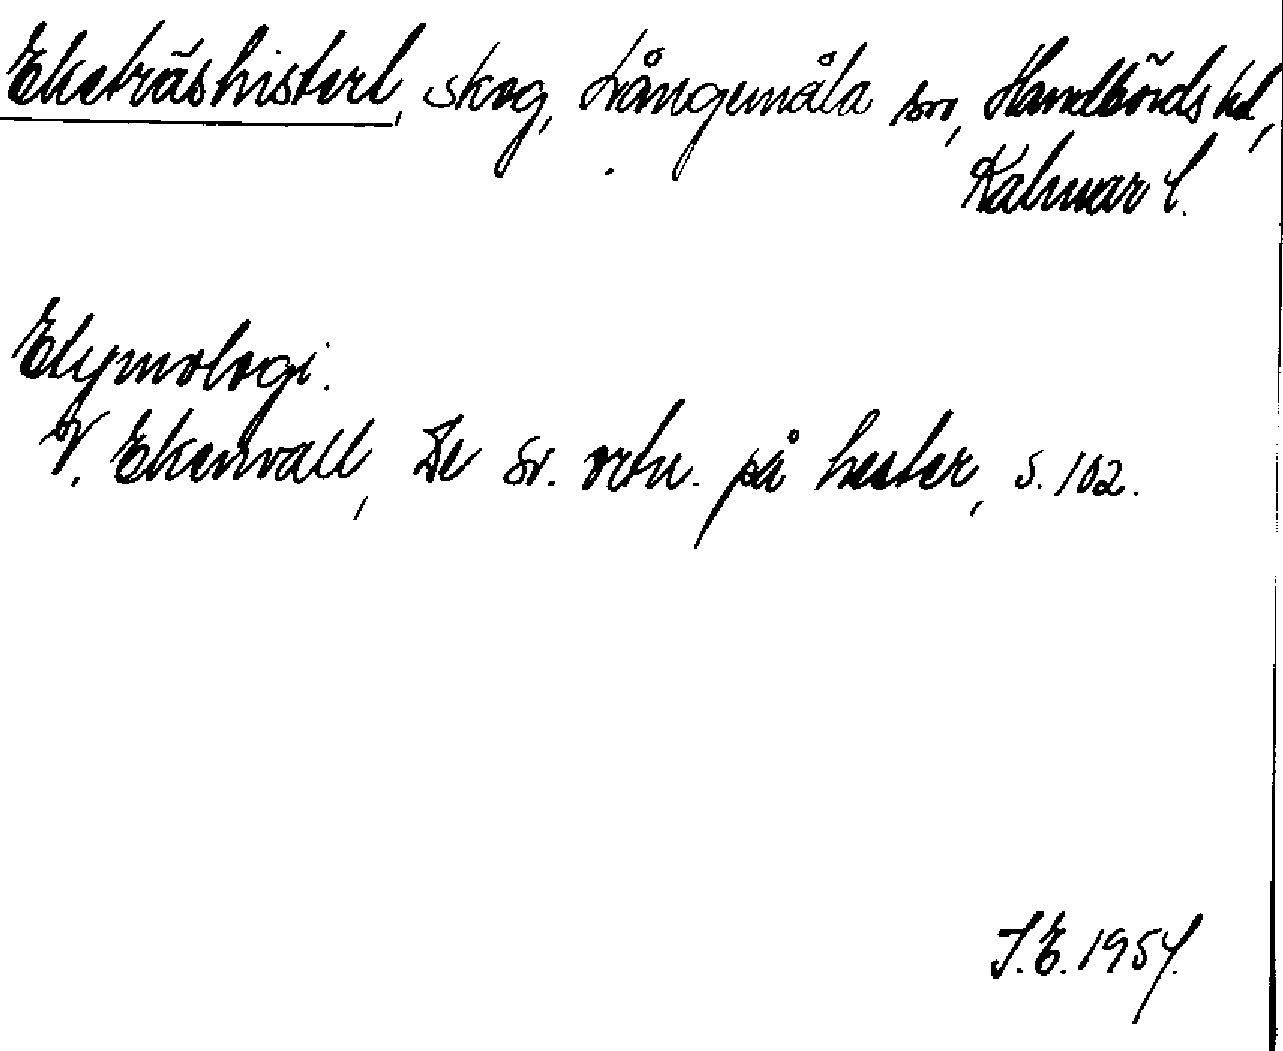 Eketräshisterl, skog, Långemåla sn, Handbörds hd,
Kalmar l.
Etymologi.
V. Ekenvall, De sv. ortn. på hester, s. 102.
S.E. 1954.